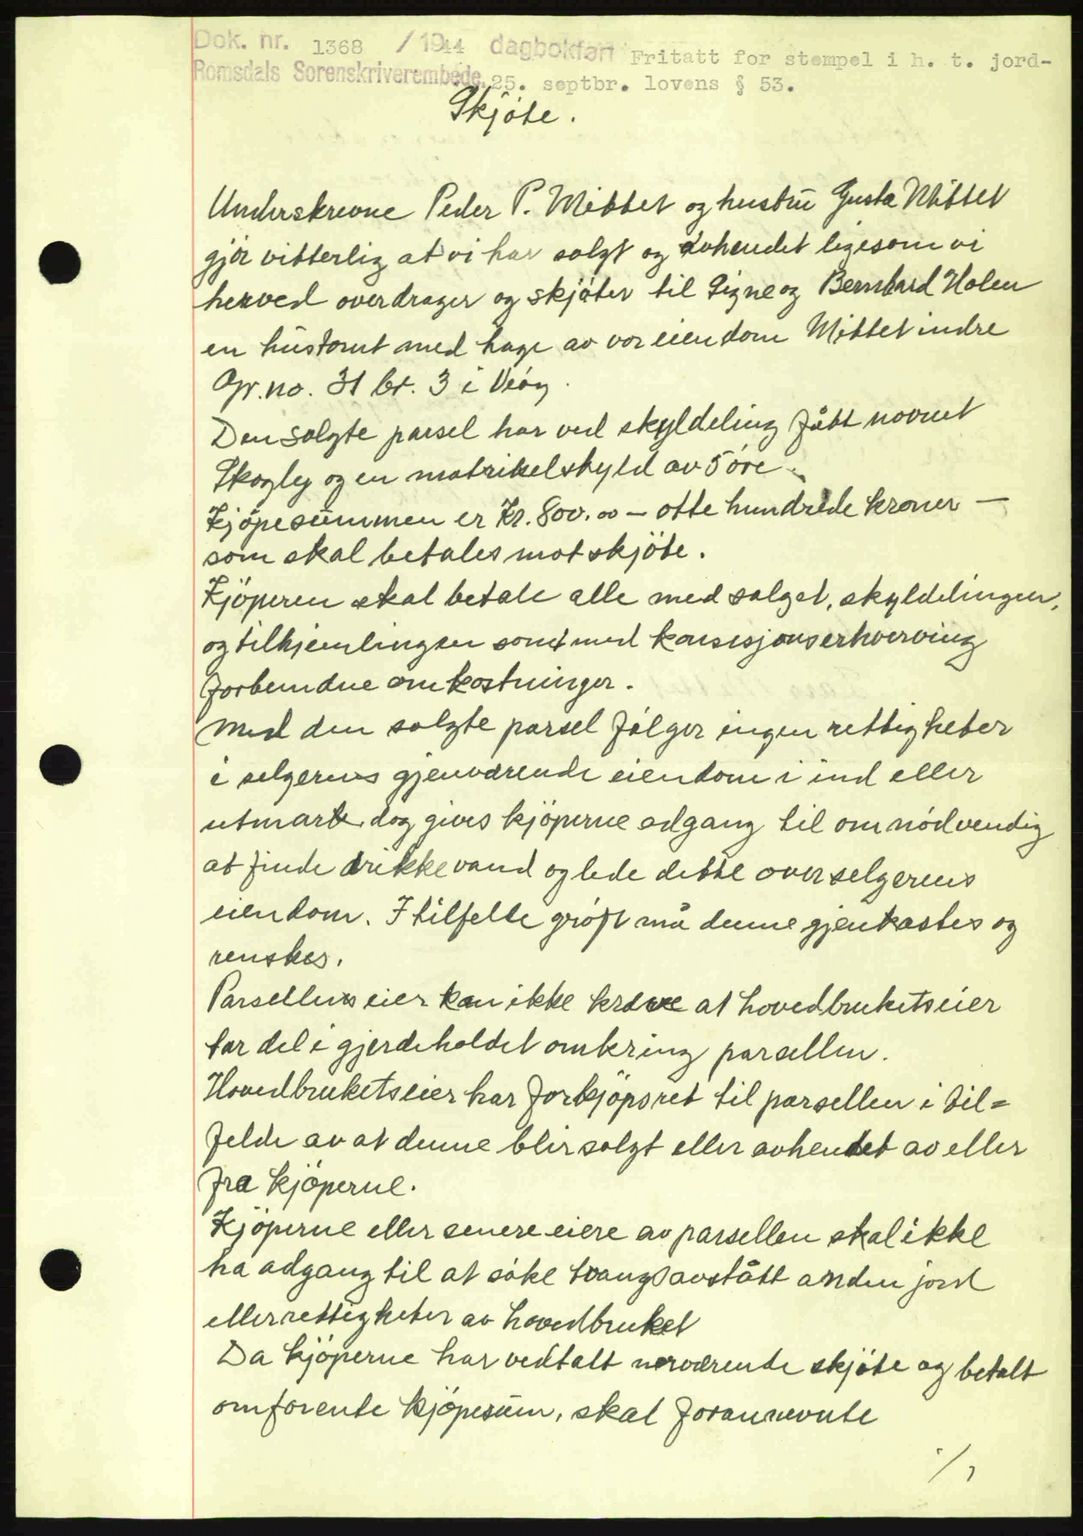 Dok. nr. 1368 / 1944 dagbokført Fritatt for stempel i h. t. jord-
Romsdals Sorenskriverembede. 25. septbr. lovens § 53.
Skjöte.
Underskrevne Peder P. Mittet og hustru Gusta Mittet
gjör vitterlig at vi har solgt og avhendet ligesom vi
herved overdrager og skjöter til Signe og Bernhard Holen
en hustomt med hage av vor eiendom Mittet indre
Gr.no. 31 br. 3 i Veöy.
Den solgte parsel har ved skyldeling fått navnet
Skogly og en matrikelskyld av 5 öre.
Kjöpesummen er Kr. 800.00 — otte hundrede kroner —
som skal betales mot skjöte.
Kjöperen skal betale alle med salget, skyldelingen,
og tilhjemlingen samt med konsesjonserhverving
forbundne omkostninger.
Med den solgte parsel fölger ingen rettigheter
i selgerens gjenværende eiendom i ind eller
utmark, dog gives kjöperne adgang til om nödvendig
at finde drikkevand og lede dette over selgerens
eiendom. I tilfelle gröft må denne gjenkastes og
renskes.
Parsellens eier kan ikke kreve at hovedbrukets eier
tar del i gjerdeholdet omkring parsellen.
Hovedbrukets eier har forkjöpsret til parsellen i til=
felde av at denne blir solgt eller avhendet av eller
fra kjöperne.
Kjöperne eller senere eiere av parsellen skal ikke
ha adgang til at söke tvangsavstått anden jord
eller rettigheter av hovedbruket
Da kjöperne har vedtatt nærværende skjöte og betalt
omforente kjöpesum, skal forannevnte